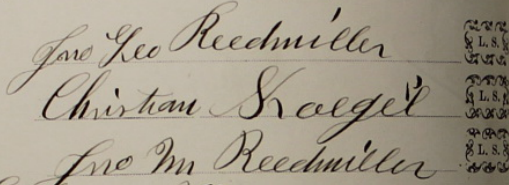 Jno Geo Reedmiller L. S.
Christian Kroegel L. S.
Jno M Reedmiller L. S.